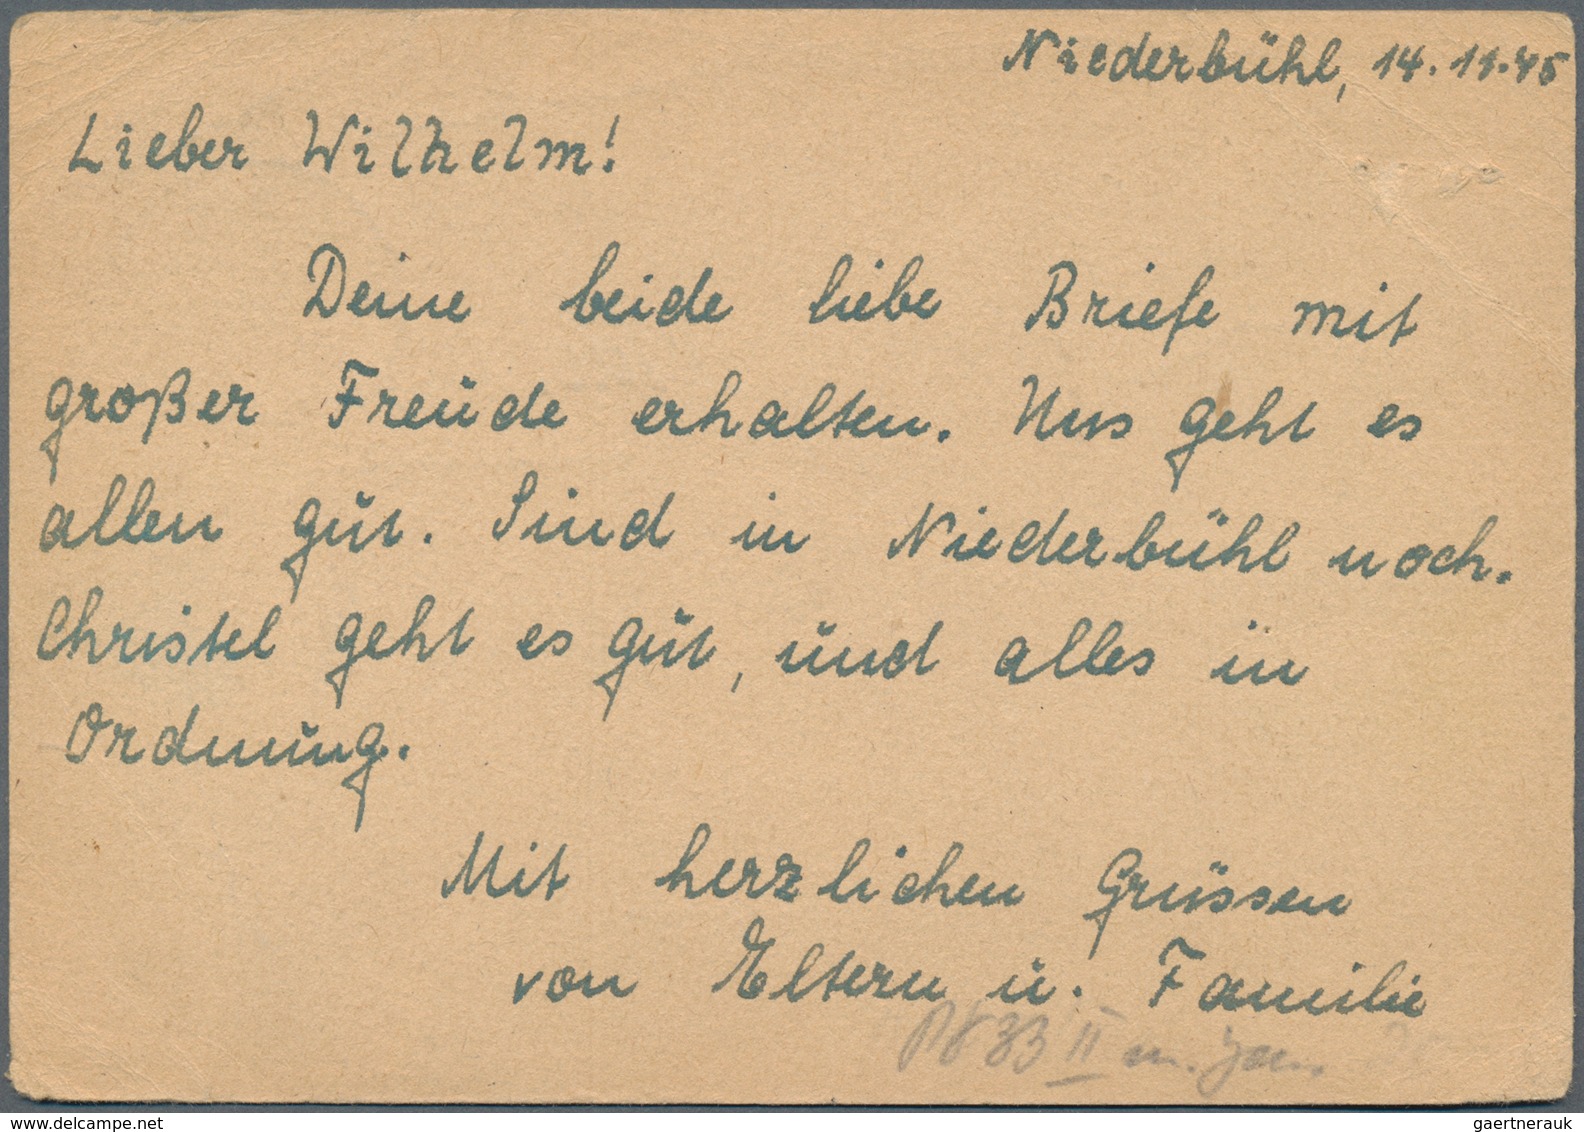 Niederbühl, 14.11.45
Lieber Wilhelm!
Deine beide liebe Briefe mit
großer Freude erhalten. Uns geht es
allen gut. Sind in Niederbühl noch.
Christel geht es gut, und alles in
Ordnung.
Mit herzlichen Grüssen
von Eltern u. Familie
II
delcampe.net
gaertnerauk